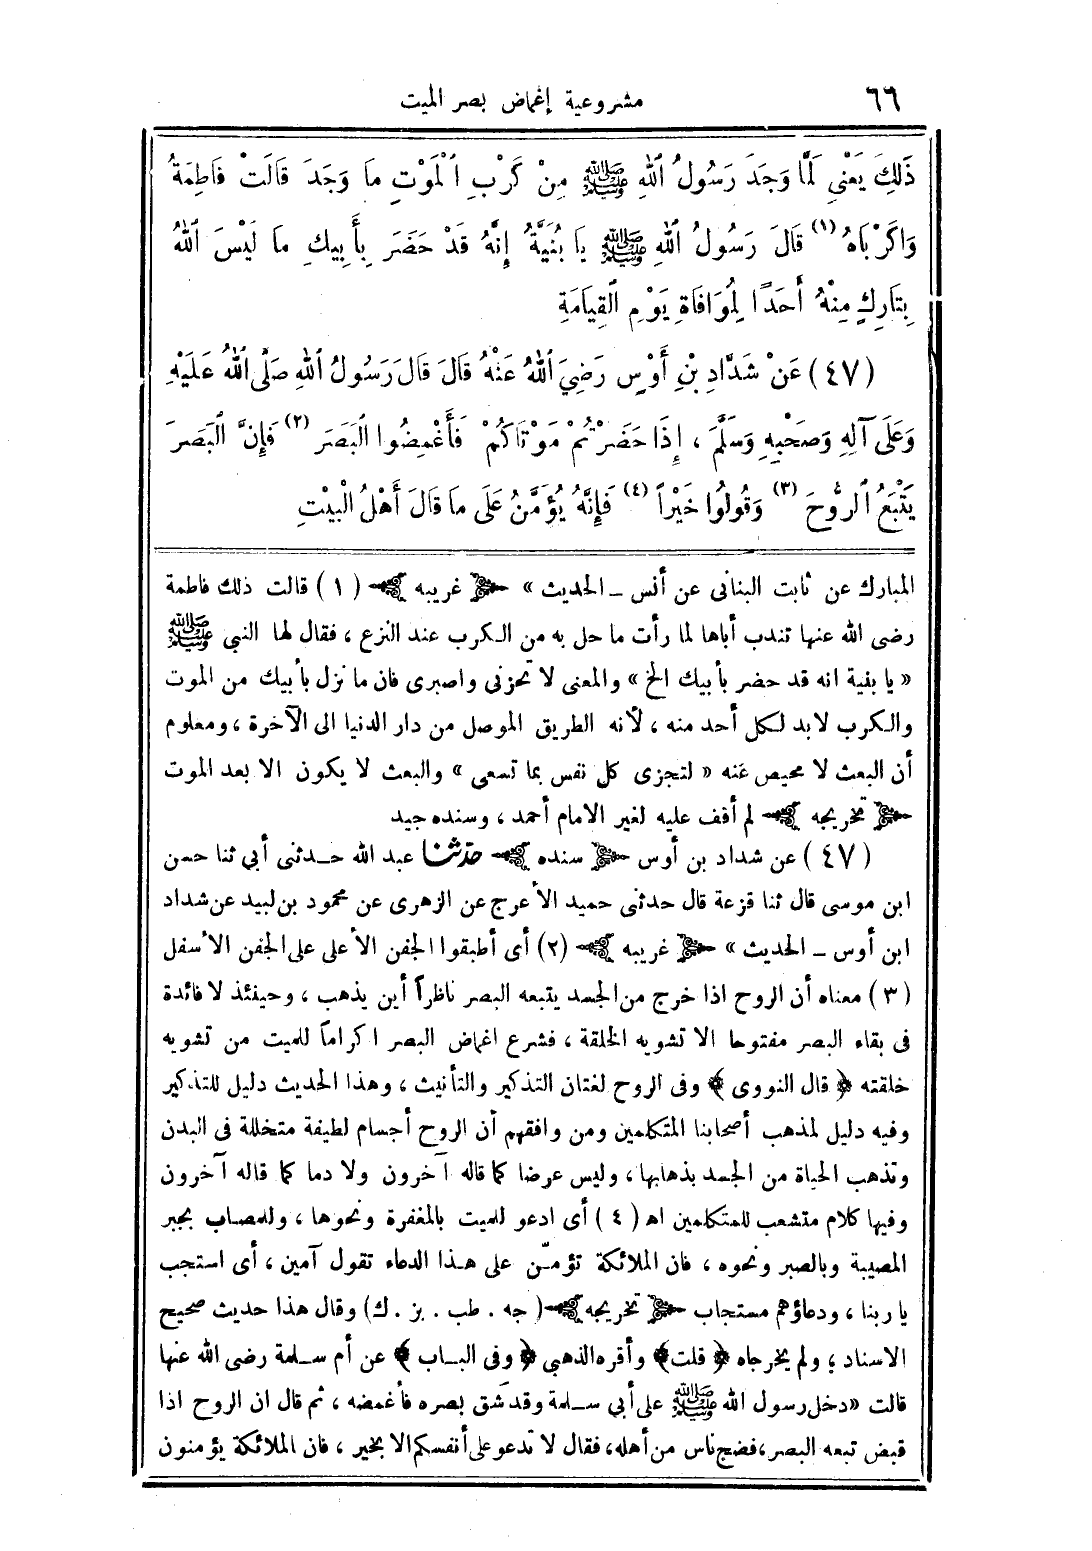 ٦٦ مشروعية إغماض بصر الميت
ذَلِكَ يَعْنِي لَمَّا وَجَدَ رَسُولُ اللهِ ﷺ مِنْ كَرْبِ الْمَوْتِ مَا وَجَدَ قَالَتْ فَاطِمَةُ
وَاكَرْبَاهُ (١) قَالَ رَسُولُ اللهِ ﷺ يَا بُنَيَّةُ إِنَّهُ قَدْ حَضَرَ بِأَبِيكِ مَا لَيْسَ اللهُ
بِتَارِكٍ مِنْهُ أَحَدًا لِمُوَافَاةِ يَوْمِ الْقِيَامَةِ
(٤٧) عَنْ شَدَّادِ بْنِ أَوْسٍ رَضِيَ اللهُ عَنْهُ قَالَ قَالَ رَسُولُ اللهِ صَلَّى اللهُ عَلَيْهِ
وَعَلَى آلِهِ وَصَحْبِهِ وَسَلَّمَ ، إِذَا حَضَرْتُمْ مَوْتَاكُمْ فَأَغْمِضُوا الْبَصَرَ (٢) فَإِنَّ الْبَصَرَ
يَتْبَعُ الرُّوحَ (٣) وَقُولُوا خَيْراً (٤) فَإِنَّهُ يُؤَمَّنُ عَلَى مَا قَالَ أَهْلُ الْبَيْتِ
المبارك عن ثابت البنانى عن أنس ــ الحديث » ﴿ غريبه ﴾ (١) قالت ذلك فاطمة
رضى الله عنها تندب أباها لما رأت ما حل به من الكرب عند النزع ، فقال لها النبي ﷺ
« يا بنية انه قد حضر بأبيك الخ » والمعنى لا تحزنى واصبرى فان ما نزل بأبيك من الموت
والكرب لابد لكل أحد منه ، لأنه الطريق الموصل من دار الدنيا الى الآخرة ، ومعلوم
أن البعث لا محيص عنه « لتجزى كل نفس بما تسعى » والبعث لا يكون الا بعد الموت
﴿ تخريجه ﴾ لم أقف عليه لغير الامام أحمد ، وسنده جيد
(٤٧) عن شداد بن أوس ﴿ سنده ﴾ حدثنا عبد الله حدثنى أبي ثنا حسن
ابن موسى قال ثنا قزعة قال حدثنى حميد الأعرج عن الزهرى عن محمود بن لبيد عن شداد
ابن أوس ــ الحديث » ﴿ غريبه ﴾ (٢) أى أطبقوا الجفن الأعلى على الجفن الأسفل
(٣) معناه أن الروح اذا خرج من الجسد يتبعه البصر ناظراً أين يذهب ، وحينئذ لا فائدة
فى بقاء البصر مفتوحا الا تشويه الخلقة ، فشرع اغماض البصر اكراماً للميت من تشويه
خلقته ﴿ قال النووى ﴾ وفى الروح لغتان التذكير والتأنيث ، وهذا الحديث دليل للتذكير
وفيه دليل لمذهب أصحابنا المتكلمين ومن وافقهم أن الروح أجسام لطيفة متخللة فى البدن
وتذهب الحياة من الجسد بذهابها ، وليس عرضا كما قاله آخرون ولا دما كما قاله آخرون
وفيها كلام متشعب للمتكلمين اه (٤) أى ادعو للميت بالمغفرة ونحوها ، وللمصاب بجبر
المصيبة وبالصبر ونحوه ، فان الملائكة تؤمّن على هذا الدعاء تقول آمين ، أى استجب
يا ربنا ، ودعاؤهم مستجاب ﴿ تخريجه ﴾ (جه . طب . بز . ك) وقال هذا حديث صحيح
الاسناد ؛ ولم يخرجاه ﴿ قلت ﴾ وأقره الذهبي ﴿ وفى الباب ﴾ عن أم سلمة رضى الله عنها
قالت « دخل رسول الله ﷺ على أبي سلمة وقد شق بصره فأغمضه ، ثم قال ان الروح اذا
قبض تبعه البصر ، فضج ناس من أهله ، فقال لا تدعو على أنفسكم الا بخير ، فان الملائكة يؤمنون